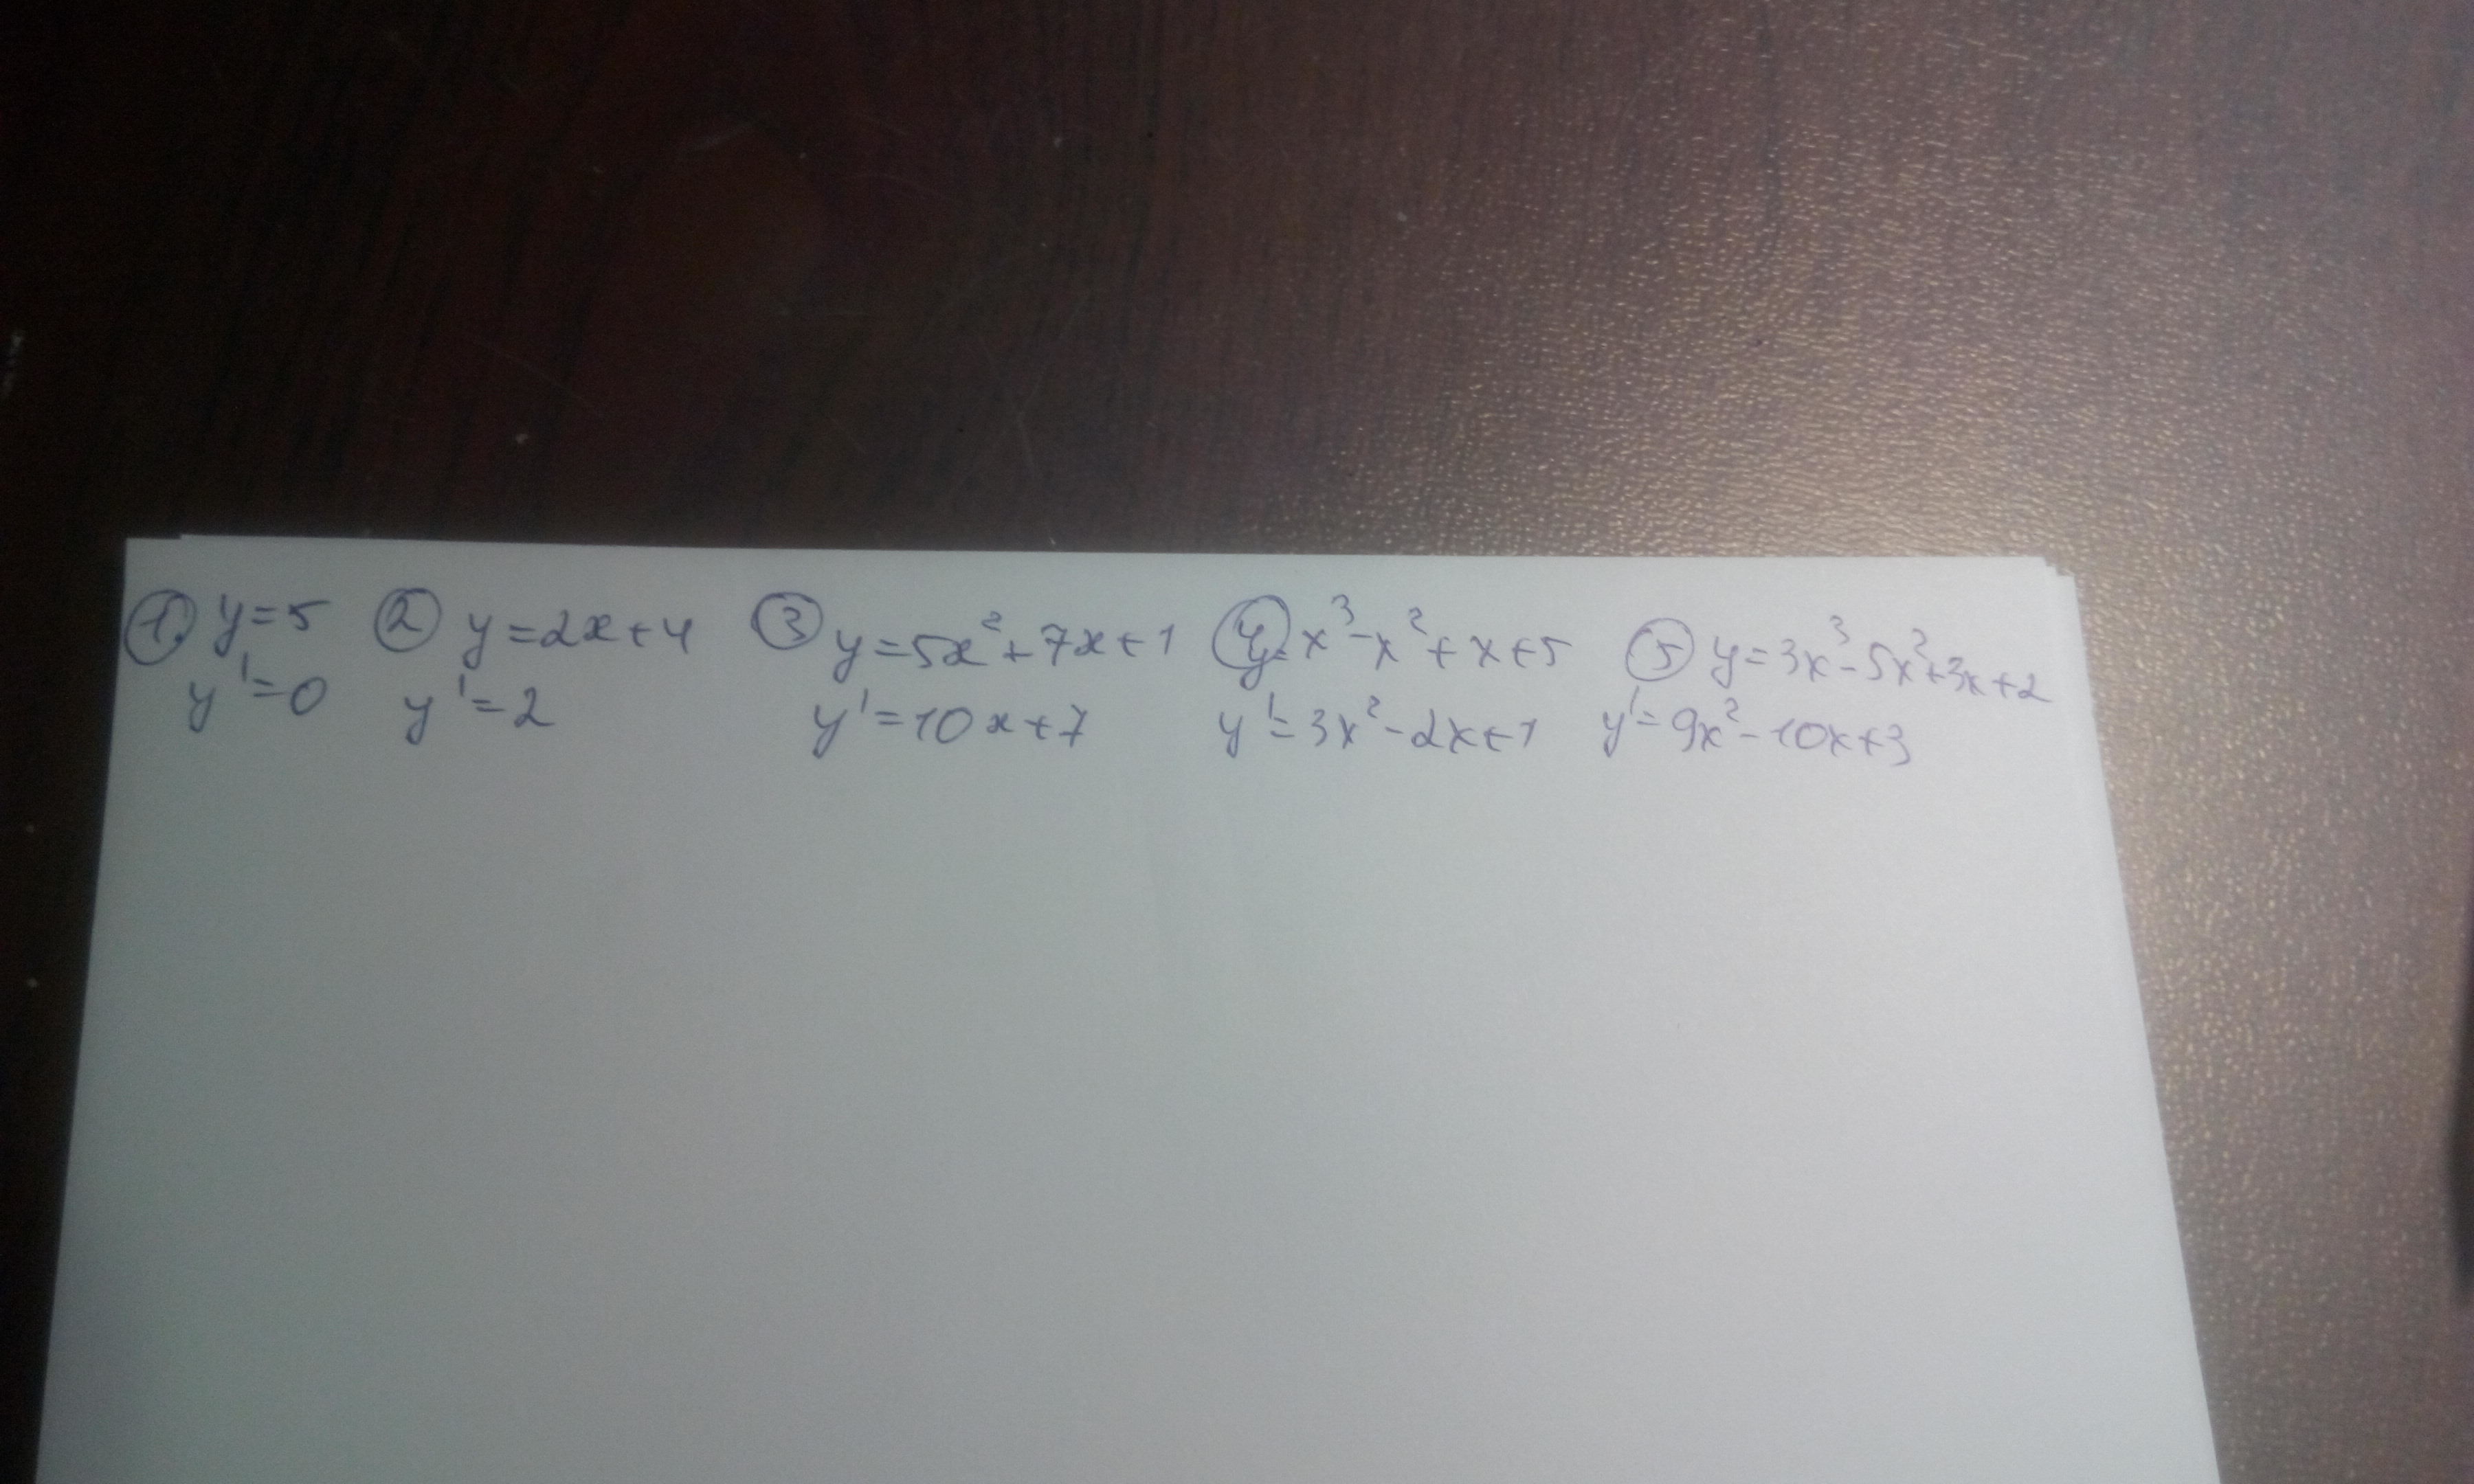 ① y=5 ② y=2x+4 ③ y=5x²+7x+1 ④ y=x³-x²+x+5 ⑤ y=3x³-5x²+3x+2
y'=0 y'=2 y'=10x+7 y'=3x²-2x+1 y'=9x²-10x+3